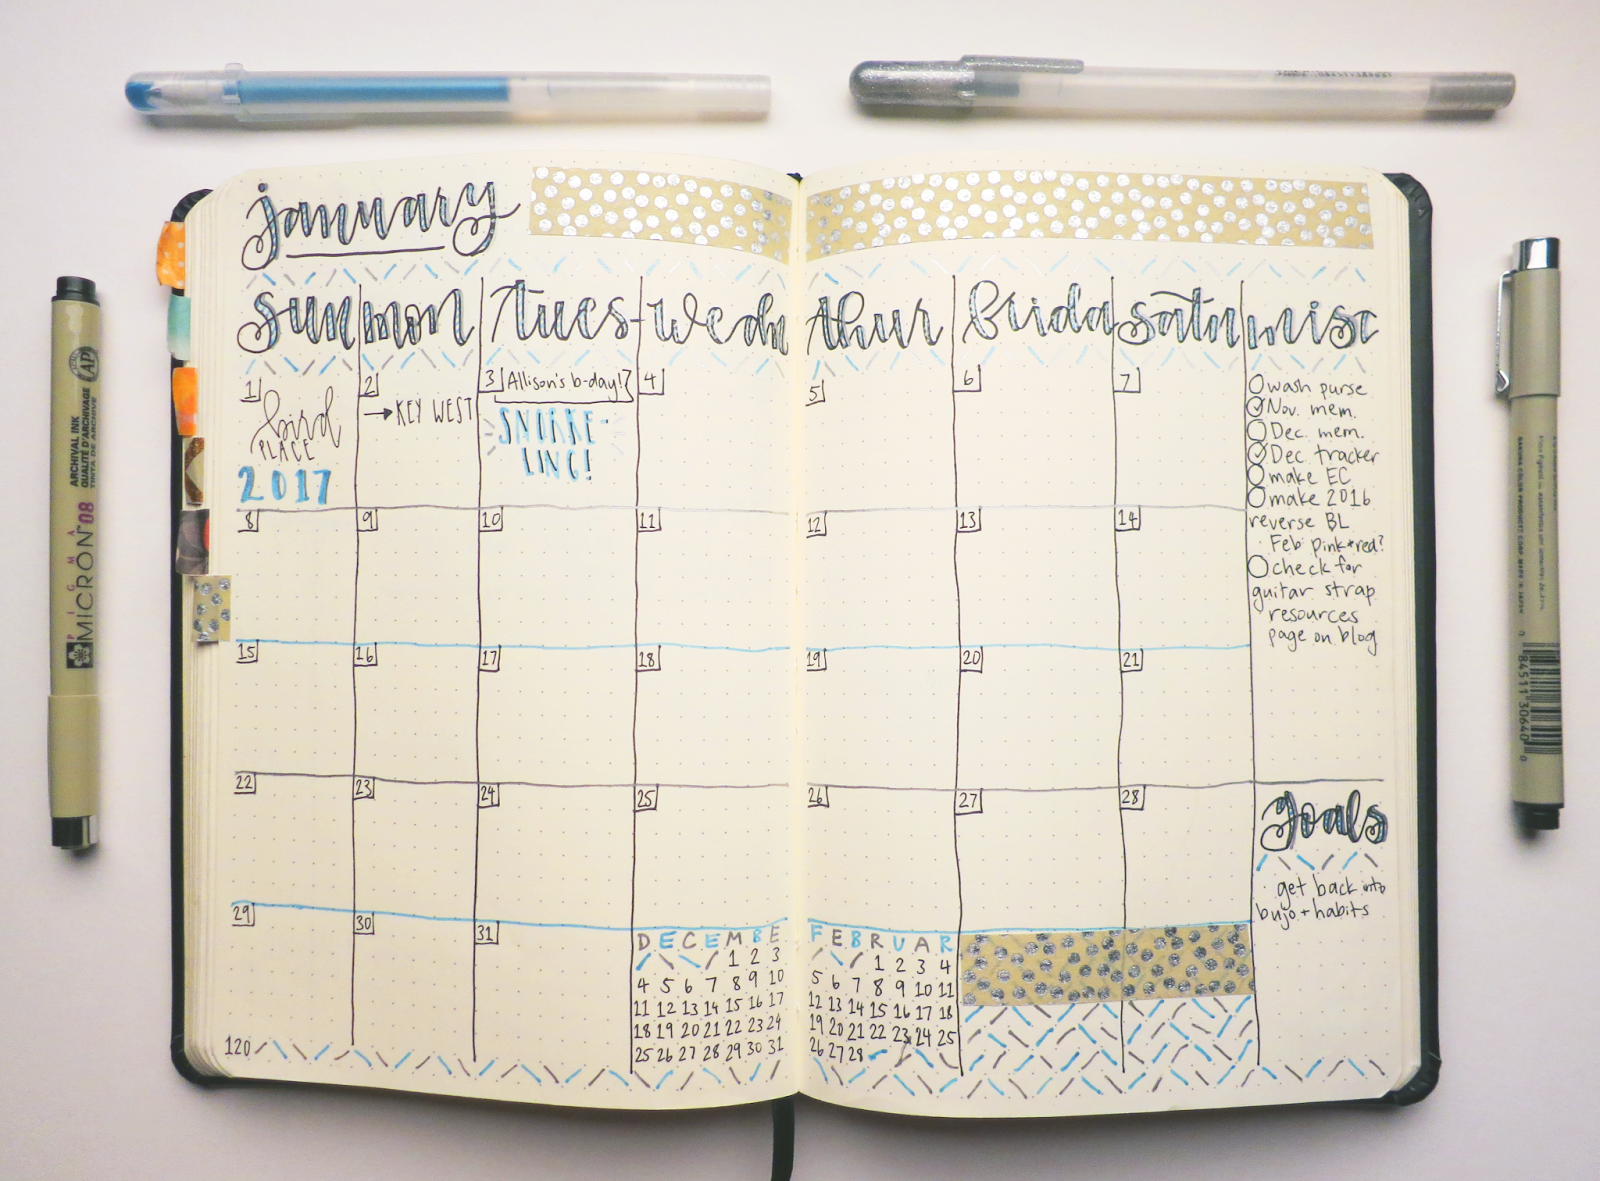 january
sun mon tues- wedn thur frida satur misc
1
bird
PLACE
2017
2
→KEY WEST
3 Allison's b-day!
SNORKE-
LING!
4
5
6
7
wash purse
Nov. mem.
Dec. mem.
Dec. tracker
make EC
make 2016
reverse BL
· Feb: pink+red?
check for
guitar strap
resources
page on blog
8 9 10 11 12 13 14
15 16 17 18 19 20 21
22 23 24 25 26 27 28
goals
· get back into
bujo + habits
29 30 31
DECEMBE
1 2 3
4 5 6 7 8 9 10
11 12 13 14 15 16 17
18 19 20 21 22 23 24
25 26 27 28 29 30 31
FEBRUAR
1 2 3 4
5 6 7 8 9 10 11
12 13 14 15 16 17 18
19 20 21 22 23 24 25
26 27 28
120
PIGMA
MICRON™ 08
ARCHIVAL INK
QUALITÉ D'ARCHIVAGE
TINTA DE ARCHIVO
AP
0 84511 30640 0